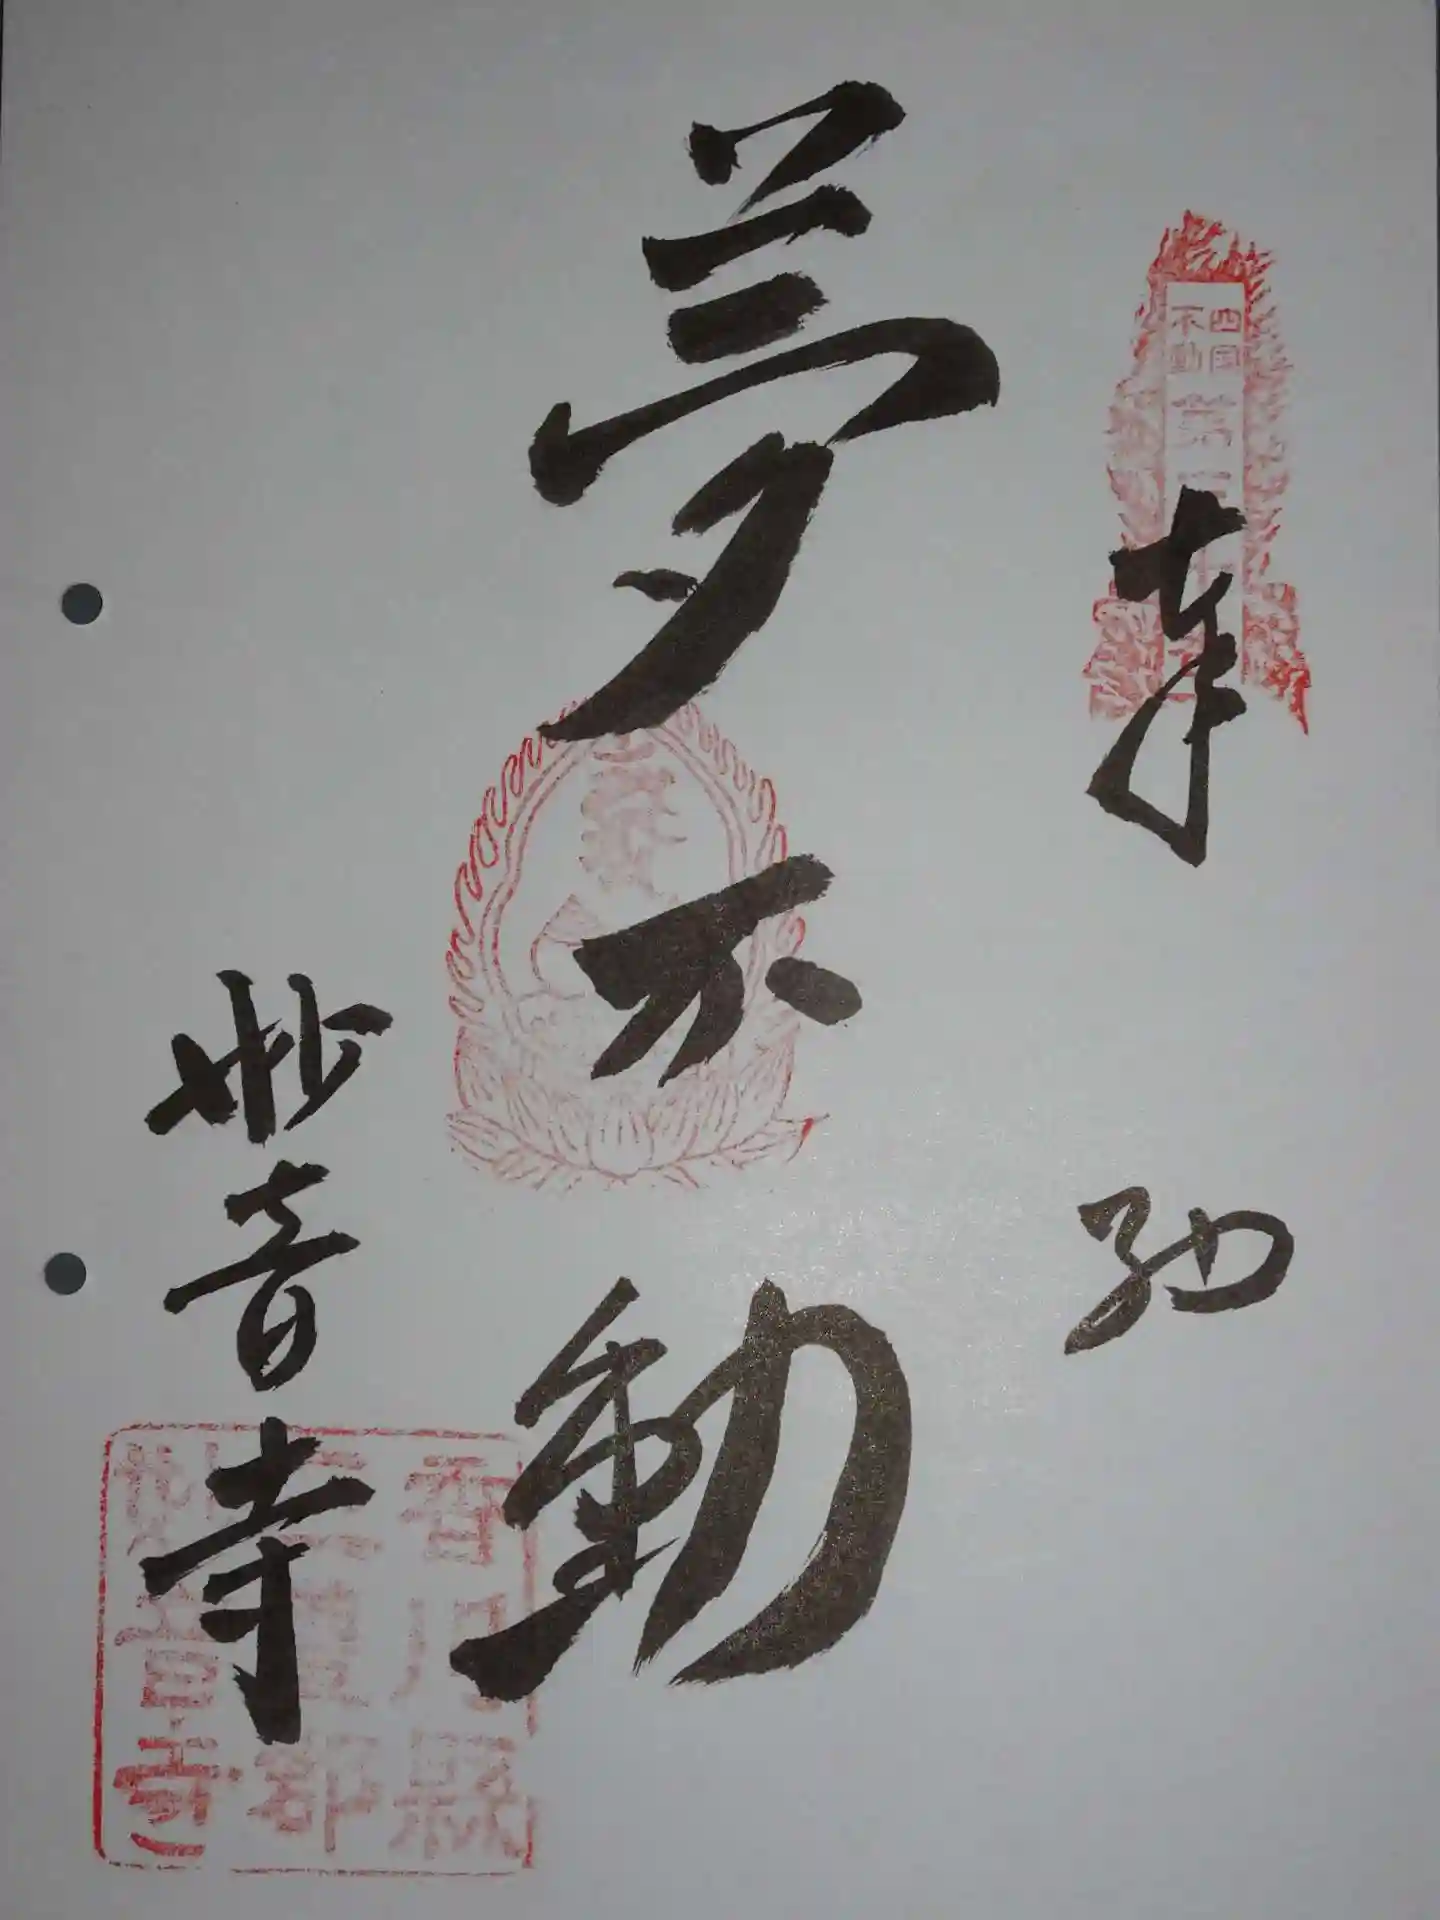 四国
不動
第
奉納
夢不動
妙音寺
香川縣
三豊郡
妙音寺